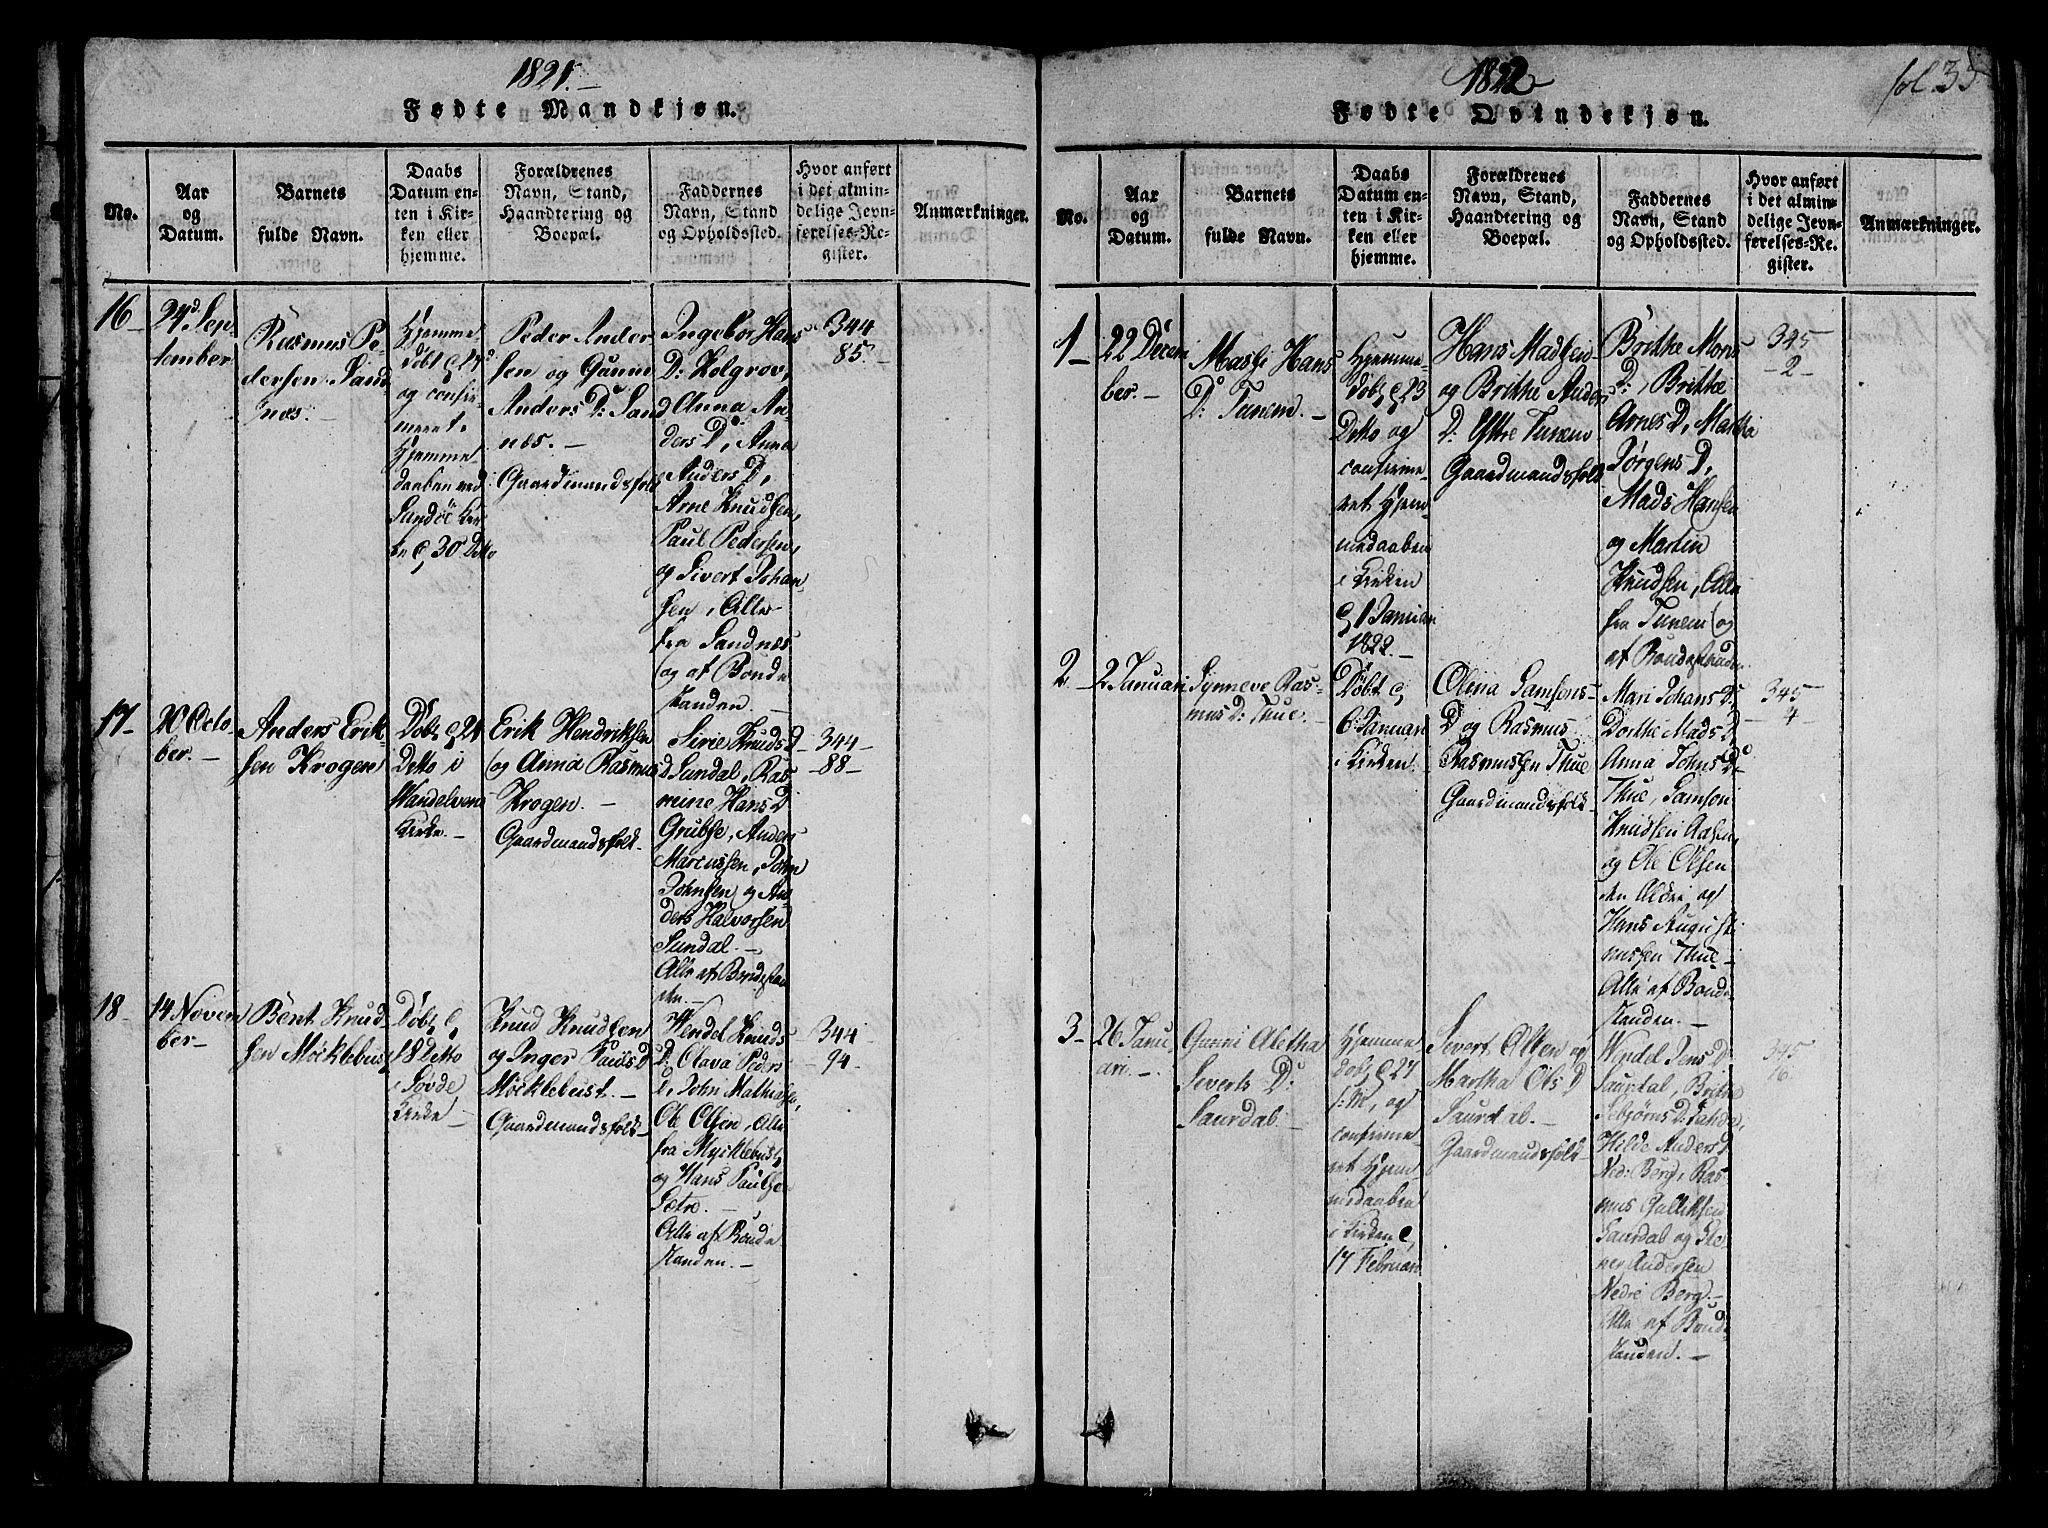 1821.
Fødte Mandkjøn.
No.
Aar
og
Datum.
Barnets
fulde Navn.
Daabs
Datum en-
ten i Kir-
ken eller
hjemme.
Forældrenes
Navn, Stand,
Haandtering og
Boepæl.
Faddernes
Navn, Stand
og Opholdssted.
Hvor anført
i det almin-
delige Jevn-
førelses-Re-
gister.
Anmærkninger.
16
24d Sep
tember
Rasmus Pe-
dersen Sand
næs.
Hjemme
døbt d 24d
og confir-
meret
Hjemme
daaben ved
Sandöe Kir
ke d 30 Dtto
Peder Ander
sen og Gunni
Anders D: Sand
næs. –
Gaardmandsfolk
Ingebor Hans
D: Holgrov,
Anna An-
ders D, Anna
Anders D,
Arne Knudsen,
Paul Pedersen,
og Sivert Johan
sen, Alle
fra Sandnæs
og af Bonde
standen. –
344
85.
17
20 Octo-
ber. –
Anders Erik-
sen Krogen
Døbt d 24
Detto i
Wandelvens
Kirke. –
Erik Hendriksen
og Anna Rasmus D
Krogen. –
Gaardmandsfolk.
Sirie Knuds D
Sundal, Ras
mine Hans D
Grubse, Anders
Marcussen, John
Johnsen og An-
ders Halvorsen
Sundal. –
Alle af Bondestan
den. –
344
88
18
14 Novem
ber –
Bent Knud
sen Möcklebust
Døbt d
18 Detto
i Søvde
Kirke –
Knud Knudsen
og Inger Pauls D
Möcklebust. –
Gaardmandsfolk
Wendel Knuds
D: Olava Peders
D, John Mathiasen,
Ole Olsen, Alle
fra Myklebust,
og Hans Paulsen
Sætre. –
Alle af Bonde
standen. –
344
94
1822
fol 35
Fødte Qvindekjøn.
No.
Aar
og
Datum.
Barnets
fulde Navn.
Daabs
Datum en-
ten i Kir-
ken eller
hjemme.
Forældrenes
Navn, Stand,
Haandtering og
Boepæl.
Faddernes
Navn, Stand
og Opholdssted.
Hvor anført
i det almin-
delige Jevn-
førelses-Re-
gister.
Anmærkninger.
1
22 Decem
ber. –
Masse Hans
D: Tunem. –
Hjemme
døbt d 23
Detto og
confirme
ret Hjem-
medaaben
i Kirken
d 1 Januari
1822. –
Hans Madsen
og Brithe Anders
D: Yttre Tunem
Gaardmandsfolk
Brithe Mons
D:, Brithe
Arnes D, Martha
Jörgens D,
Mads Hansen
og Martin
Knudsen, Alle
fra Tunem og
af Bondestanden
345
2
2
2 Januari
Synneve Ras-
mus D: Thue. –
Døbt d
6 Januari
i Kirken.
Olina Samsons
D og Rasmus
Rasmussen Thue
Gaardmandsfolk
Mari Johans D:
Dorthe Mads D
Anna Johns D
Thue, Samson
Knudsen Aasen,
og Ole Olsen
den Aldre, og
Hans Augusti
nussen Thue
Alle af Bonde
standen. –
345
4
3
26 Janu
ari. –
Gunni Aletha
Siverts D:
Saurdal –
Hjemme
døbt d 27
s: M, og
confirme
ret Hjem
medaaben
i Kirken d
17 Februari
Sivert Olsen og
Martha Ols D
Saurdal. –
Gaardmandsfolk
Wendel Jens D:
Saurdal, Brithe
Hilde Anders D
Ned: Berg, Ras-
mus Gulliksen
Saurdal og Ste
ner Andersen
Nedre Berg. –
Alle af Bonde
standen. –
345
16.